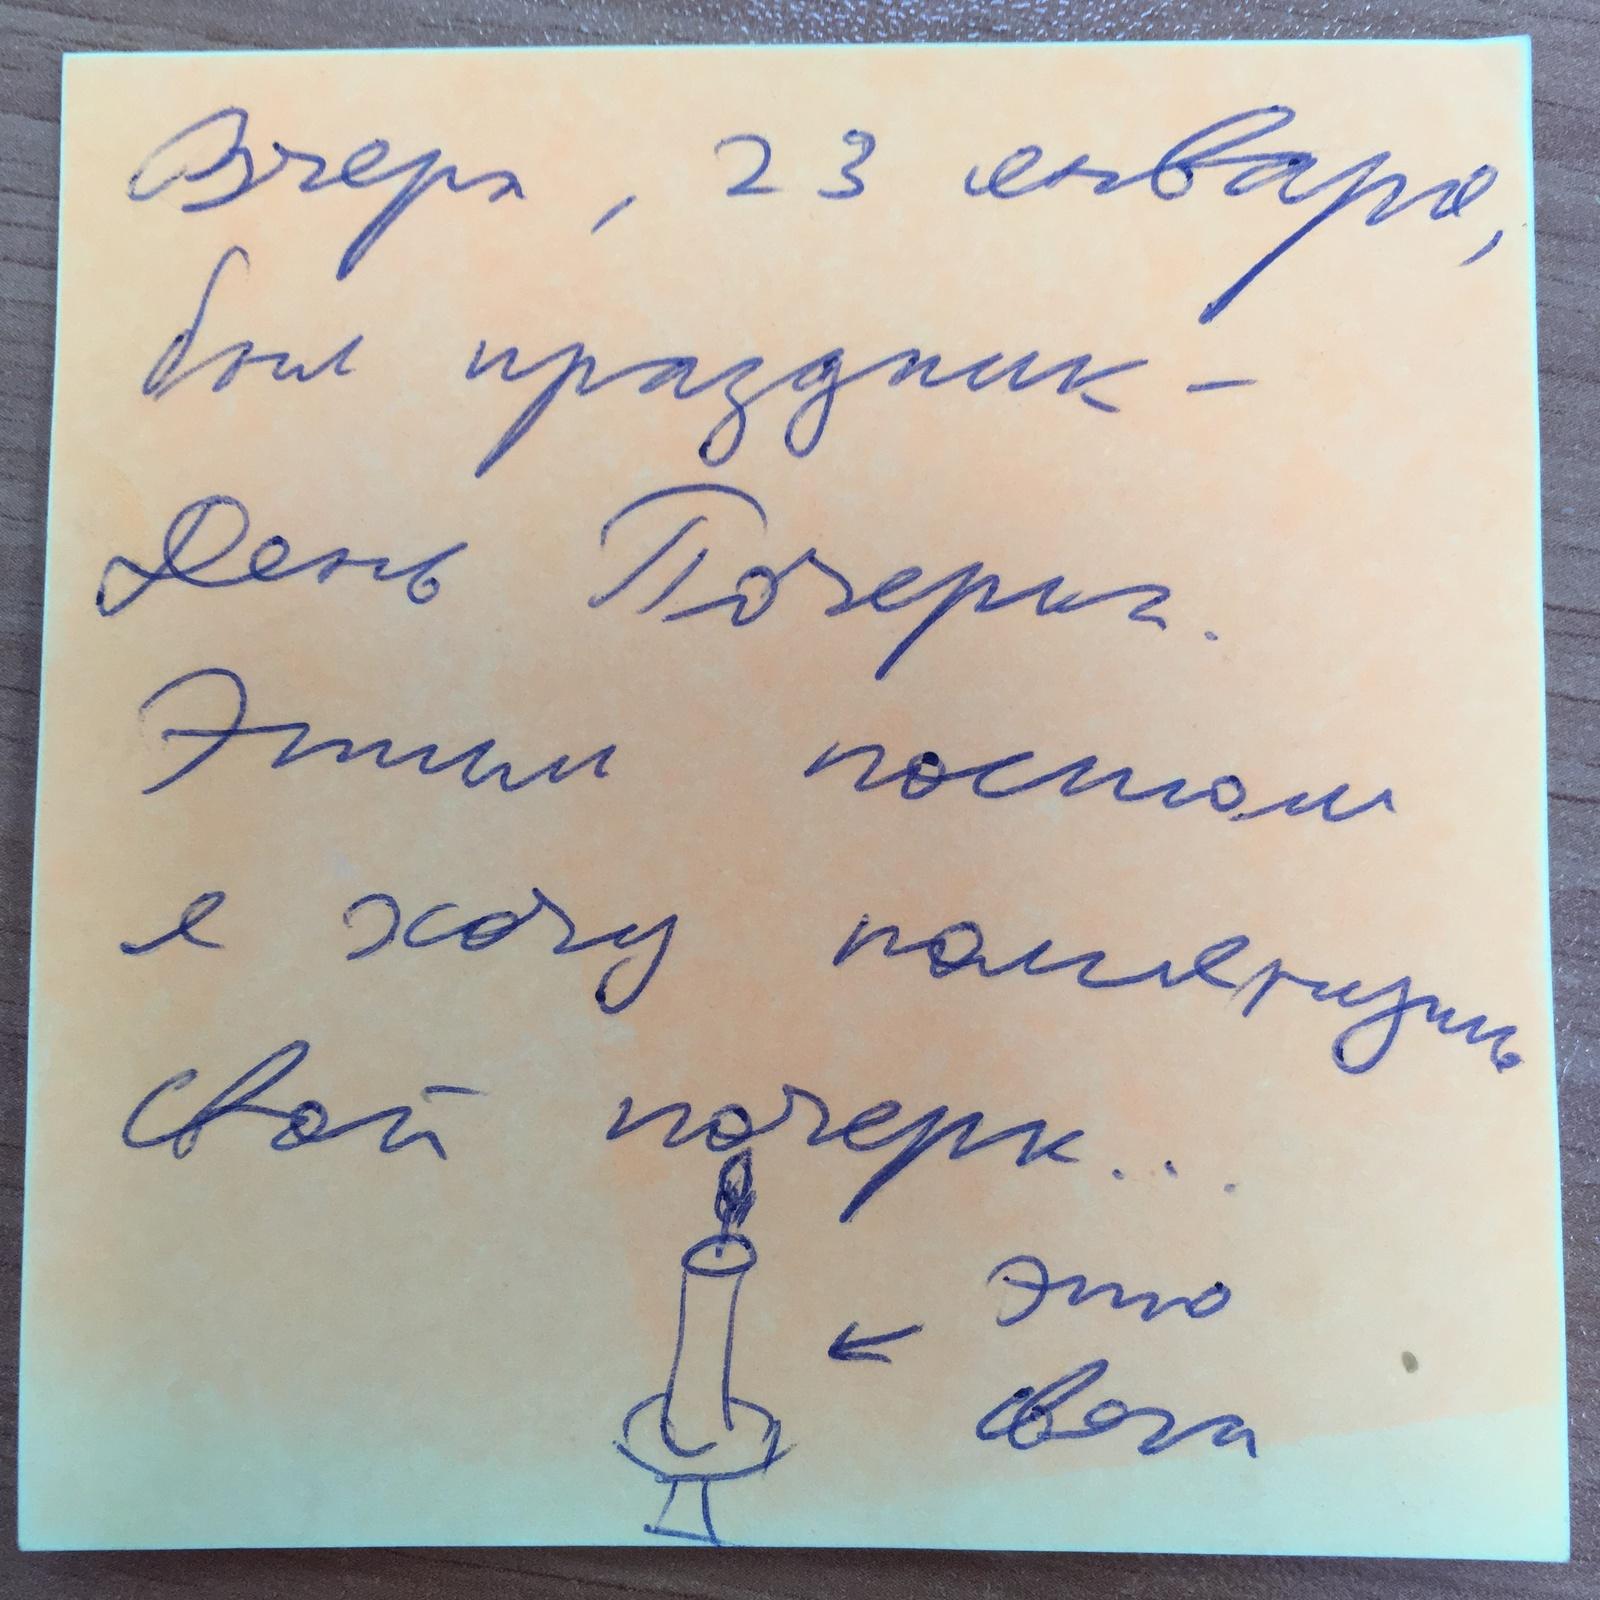 Вчера, 23 января,
был праздник -
День Почерка.
Этим постом
я хочу помянуть
свой почерк...
← это
свеча